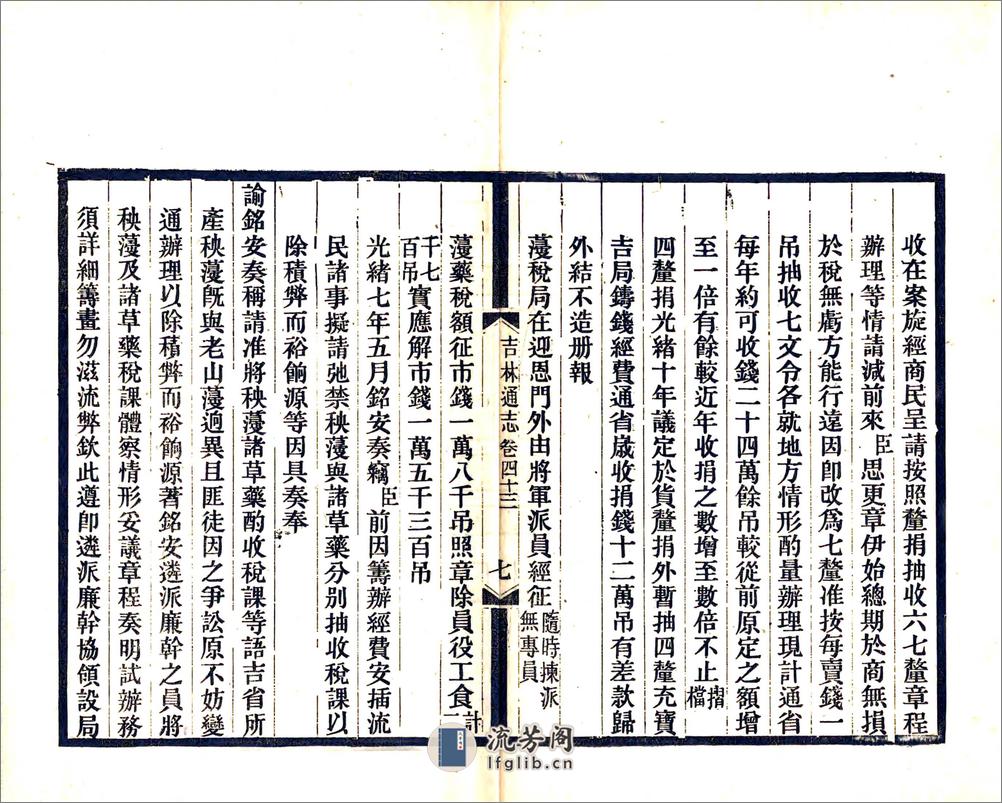 收在案旋經商民呈請按照釐捐抽收六七釐章程
辦理等情請減前來臣思更章伊始總期於商無損
於稅無虧方能行遠因卽改爲七釐准按每賣錢一
吊抽收七文令各就地方情形酌量辦理現計通省
每年約可收錢二十四萬餘吊較從前原定之額增
至一倍有餘較近年收捐之數增至數倍不止摺檔
四釐捐光緒十年議定於貨釐捐外暫抽四釐充寶
吉局鑄錢經費通省歲收捐錢十二萬吊有差款歸
外結不造册報
薓稅局在迎恩門外由將軍派員經征隨時揀派無專員
吉林通志卷四十三
七
薓藥稅額征市錢一萬八千吊照章除員役工食計二
千七百吊實應解市錢一萬五千三百吊
光緒七年五月銘安奏竊臣前因籌辦經費安插流
民諸事擬請弛禁秧薓與諸草藥分别抽收稅課以
除積弊而裕餉源等因具奏奉
諭銘安奏稱請准將秧薓諸草藥酌收稅課等語吉省所
產秧薓旣與老山薓迥異且匪徒因之爭訟原不妨變
通辦理以除積弊而裕餉源著銘安遴派廉幹之員將
秧薓及諸草藥稅課體察情形妥議章程奏明試辦務
須詳細籌畫勿滋流弊欽此遵卽遴派廉幹協領設局
流芳阁
lfglib.cn